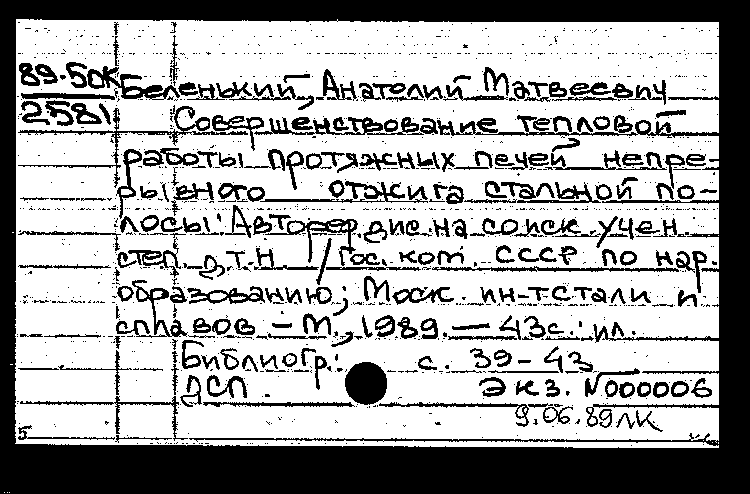 89-50К Беленький, Анатолий Матвеевич
2581 Совершенствование тепловой
работы протяжных печей непре-
рывного отжига стальной по-
лосы: Автореф. дис. на соиск. учен
степ. д.т.н. / Гос. ком. СССР по нар.
образованию; Моск. ин-т стали и
сплавов. - М., 1989. - 43с.: ил.
Библиогр.: с. 39-43
ДСП. Экз. N000006
9.06.89 ЛК
5